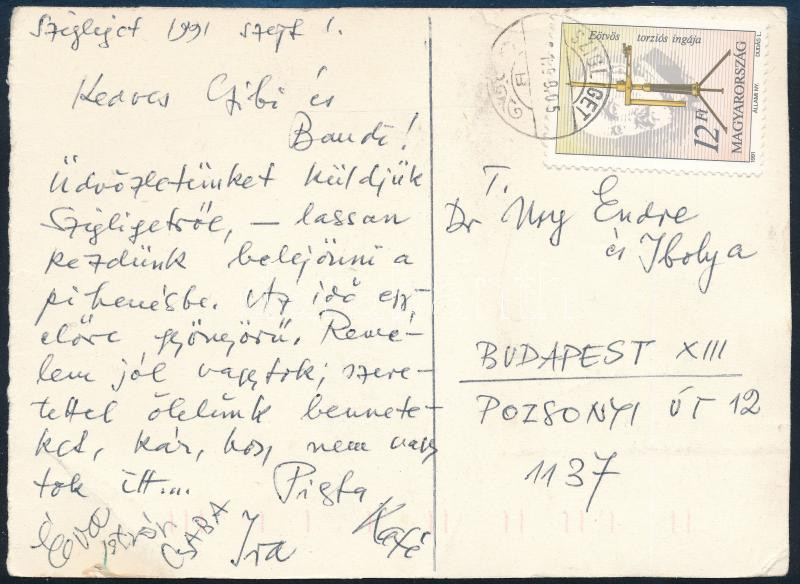 Szigliget 1991 szept 1.
Kedves Cibi és
Bandi!
Üdvözletünket küldjük
Szigligetről, – lassan
kezdünk belejönni a
pihenésbe. Az idő egy-
előre gyönyörű. Remé-
lem jól vagytok; szere-
tettel ölelünk bennete-
ket, kár, hogy nem vagy
tok itt...
Pista
Éva
István
CSABA
Ira
Kati
Eötvös torziós ingája
DUDÁS L.
MAGYARORSZÁG
12 Ft
ÁLLAMI NY.
1991
SZIGLIGET
T.
Dr Endre
és Ibolya
BUDAPEST XIII
POZSONYI ÚT 12
1137